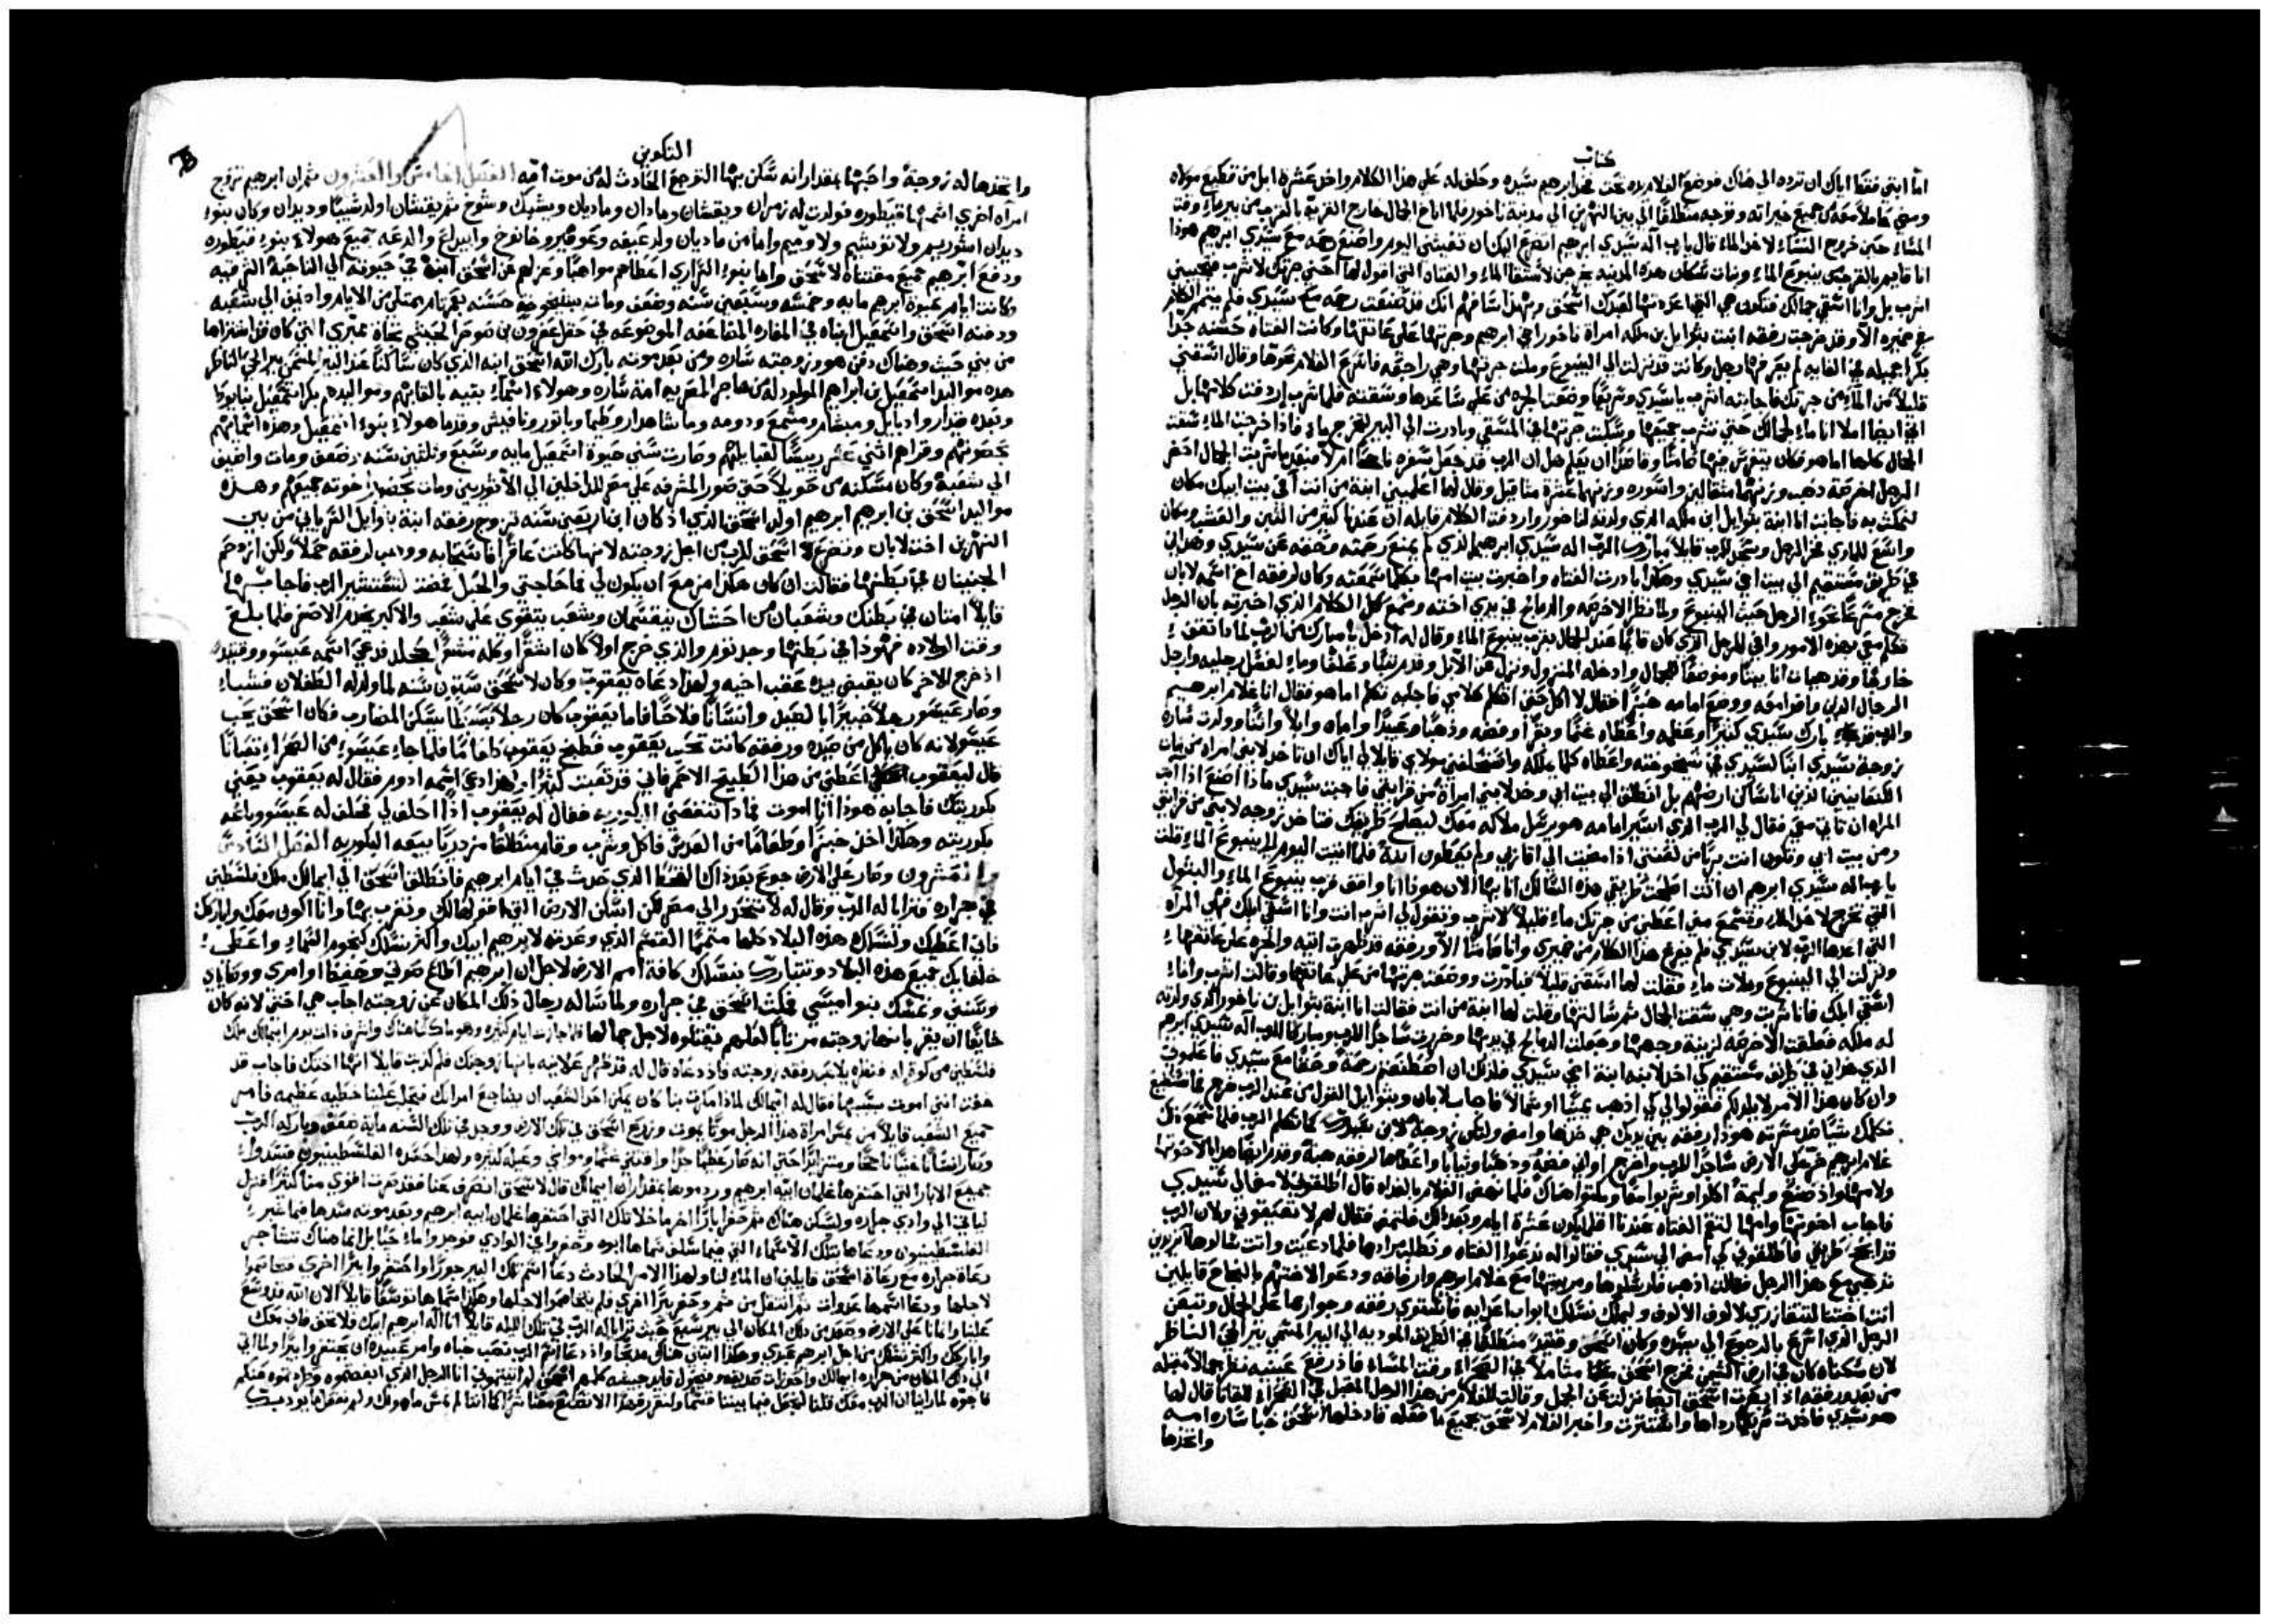 كتاب
اما ابني فقط اياك ان ترده الي هناك فوضع الغلام يده تحت فخد ابرهيم سيده وحلف له علي هذا الكلام واخد عشرة ابل من قطيع مولاه
ومضي حاملاً معه من جميع خيراته وتوجه منطلقاً الي بين النهرين الي مدينة ناخور فلما اناخ الجمال خارج القرية بالقرب من بير ماء وقت
المساء حين خروج النساء لاخد الماء قال يا رب اله سيدي ابرهيم اتضرع اليك ان تعينني اليوم واصنع رحمه مع سيدي ابرهيم هوذا
انا قايم بالقرب من ينبوع الماء وبنات سكان هذه المدينه يخرجن لاستقا الماء والفتاه التي اقول لها احني جرتك لاشرب فتجيبني
اشرب بل وانا اسقي جمالك فتكون هي التي اعددتها لعبدك اسحق وبهذا افهم انك قد صنعت رحمه مع سيدي فلم يتم الكلام
في ضميره الا وقد خرجت رفقه ابنت بتوايل بن ملكه امراة ناخور اخي ابرهيم وجرتها علي عاتقها وكانت الفتاه حسنه جداً
بكراً جميله في الغايه لم يعرفها رجل وكانت قد نزلت الي الينبوع وملت جرتها وهي راجعه فاسرع الغلام نحوها وقال اسقني
قليلاً من الماء من جرتك فاجابته اشرب يا سيدي وسريعاً وضعت الجره من علي ساعدها وسقته فلما شرب اردفت كلامها بل
اني ايضاً املا انا ماء لجمالك حتي تشرب جميعها وسكبت جرتها في المسقي وبادرت الي البير لتخرج ماء فاذا خرجت الماء سقت
الجمال كلها اما هو فكان يتفرس فيها صامتاً وقاصداً ان يعلم هل ان الرب قد جعل سفره ناجحاً ام لا فبعد ما شربت الجمال اخرج
الرجل اخرصة دهب وزنهما مثقالين واسوره وزنها عشرة مثاقيل وقال لها اعلميني ابنة من انت أفي بيت ابيك مكان
لنمكث به فاجابت انا ابنة بتوايل ابن ملكه الذي ولدته لناحور واردفت الكلام قايله ان عندنا كثير من التبن والعشب ومكان
واسع للماوي فخر الرجل وسجد للرب قايلاً مبارك الرب اله سيدي ابرهيم الذي لم يمنع رحمته وحقه عن سيدي وهداني
في طريق مستقيم الي بيت اخي سيدي وهكذا بادرت الفتاه واخبرت بيت امها بكلما سمعته وكان لرفقه اخ اسمه لابان
فخرج مسرعاً نحو الرجل حيث الينبوع ولما نظر الاخرصه والدمالج في يدي اخته وسمع كل الكلام الذي اخبرته بان الرجل
كلمني بهذه الامور وافي للرجل الذي كان قايماً عند الجمال بقرب ينبوع الماء وقال له ادخل يا مبارك من الرب لماذا تقف
خارجاً وقد هيات انا بيتاً وموضعاً للجمال وادخله المنزل ونزل عن الابل وقدم تبناً وعلفاً وماء لغسل رجليه وارجل
الرجال الذين وافوا معه ووضع امامه خبزاً فقال لا اكل حتي اتكلم كلامي فاجابه تكلم اما هو فقال انا غلام ابرهيم
والرب قد بارك سيدي كثيراً وعظمه واعطاه غنماً وبقراً وفضه ودهباً وعبيداً واماه وابلاً واتناً وولدت ساره
زوجة سيدي ابناً لسيدي في شيخوخته واعطاه كلما ملكه واستحلفني مولاي قايلا لي اياك ان تاخد لابني امراه من بنات
الكنعانيين الذين انا ساكن ارضهم بل انطلق الي بيت ابي وخد لابني امراة من قرابتي فاجبت سيدي ماذا اصنع اذا ابت
المراه ان تاتي معي فقال لي الرب الذي اسير امامه هو يرسل ملاكه معك ليصلح طريقك فتاخد زوجه لابني من قرابتي
ومن بيت ابي وتكون انت برياً من لعنتي اذا مضيت الي اقاربي ولم يعطون ابنة فلما اتيت اليوم الي ينبوع الماء قلت
يا رب اله سيدي ابرهيم ان انت اصلحت طريقي هذه السالك انا بها الان هوذا انا واقف قرب ينبوع الماء والبتول
التي تخرج لاخد الماء وتسمع مني اعطيني من جرتك ماء قليلاً لاشرب وتقول لي اشرب انت وانا استقي لابلك فهي المرآه
التي اعدها الرب لابن سيدي فلم يفرغ هذا الكلام من ضميري وانا صامتاً الا ورفقه قد ظهرت اتيه والجره علي عاتقها
ونزلت الي الينبوع وملات ماء فقلت لها اسقني قليلاً فبادرت ووضعت جرتها من علي عاتقها وقالت اشرب وانا
اسقي ابلك فانا شربت وهي سقت الجمال ثم سالتها وقلت لها ابنة من انت فقالت انا ابنة بتوايل بن ناخور الذي ولدته
له ملكه فعلقت الاخرصه لزينة وجهها وجعلت الدمالج في يديها وخررت ساجداً للرب ومباركاً للرب اله سيدي ابرهيم
الذي هداني في طريق مستقيم كي اخد لابنه ابنة اخي سيدي فلذلك ان اصطنعتم رحمة وحقاً مع سيدي فاعلموني
وان كان هذا الامر لا يلد لكم فقولوا لي كي اذهب يميناً او شمالاً فاجاب لابان وبتوايل القول من عند الرب خرج فما نستطيع
نكلمك شياً ضد مسرته هوذا رفقه بين يديك هي خدها وامض ولتكن زوجة لابن سيدك كما تكلم الرب فلما سمع ذلك
غلام ابرهيم خر علي الارض ساجداً للرب واخرج اواني فضة ودهباً وثياباً واعطاها لرفقه هبة وقدم ايضاً هدايا لاخوتها
ولامها واذ صنع وليمة اكلوا وشربوا معاً وبكتوا هناك فلما نهض الغلام بالغداه قال اطلقوني لامضي الي سيدي
فاجاب اخوتها وامها لتقم الفتاه عندنا اقل ما يكون عشرة ايام وبعد ذلك فلتمض فقال لهم لا تعيقوني ولان الرب
قد انجح طريقي فاطلقوني كي اسير الي سيدي فقالوا له ندعوا الفتاه ونطلب مرادها فلما دعيت واتت سالوها اتريدين
تذهبي مع هذا الرجل فقالت اذهب فارسلوها ومربيتها مع غلام ابرهيم وارفاقه ودعوا لاختهم بالنجاح قايلين
انت اختنا لتتقازري لالوف الالوف وليملك نسلك ابواب اعدايه فاستوت رفقه وجوارها علي الجمال وتبعن
الرجل الذي اسرع بالرجوع الي سيده وكان اسحق وقتيذ منطلقاً في الطريق الموديه الي البير المسمي بير الحي الناظر
لان سكناه كان في ارض التيمن فخرج اسحق متاملاً في الصحراء وقت المساء فاذ رفع عينيه نظر جمالاً مقبله
من بعد ورفقه اذ ابصرت اسحق ايضاً نزلت عن الجمل وقالت للغلام من هذا الرجل المقبل في الصحراء للقانا قال لها
هو سيدي فاخدت سريعاً رداها واستترت واخبر الغلام لاسحق بجميع ما فعله فادخلها اسحق خبا ساره امه
واتخذها
التكوين
واتخذها له زوجة واحبها بمقدار انه سكن بها التوجع الحادث له من موت امه الفصل الخامس والعشرون ثم ان ابرهيم تزوج
امرآه اخري اسمها قيطوره فولدت له زمران ويقشان ومادان وماديان ويشبك وشوح ثم يقشان اولد شيبا وديدان وكان بنوء
ديدان اشوريم ولاتوشيم ولاوميم واما من ماديان ولد عيفه وعوفير وخانوخ وابيداع والدعه جميع هولاء بنوء قيطوره
ودفع ابرهيم جميع مقتناه لاسحق واما بنوء السراري اعطاهم مواهباً وعزلهم عن اسحق ابنه في حيوته الي الناحية الشرقيه
وكانت ايام حيوة ابرهيم مايه وخمسه وسبعين سنه وضعف ومات بشيخوخة حسنه بعمر تام ممتلي من الايام واضيف الي شعبه
ودفنه اسحق واسمعيل ابناه في المغاره المضاعفه الموضوعه في حقل عفرون بن صوحر الحيثي تجاة ممري التي كان قد اشتراها
من بني حيث وهناك دفن هو وزوجته ساره ومن بعد موته بارك الله اسحق ابنه الذي كان ساكناً عند البير المسمي بير الحي الناظر
هذه مواليد اسمعيل بن ابراهيم المولود له من هاجر المصريه امة ساره وهولاء اسماء بنيه بالقابهم ومواليدهم بكر اسمعيل نبايوط
وبعده قيدار وادبايل ومبسام ومشمع ودومه ومسا هدار وطيما وياتور ونافيش وقدما هولاء بنوء اسمعيل وهذه اسمايهم
بحصونهم وقراهم اثني عشر رييساً لقبايلهم وصارت سني حيوة اسمعيل مايه وسبع وثلثين سنه وضعف ومات واضيف
الي شعبة وكان مسكنه من حويلا حتي صور المشرفه علي مصر للداخلين الي الاثوريين ومات بحضرة اخوته جميعهم وهذه
مواليد اسحق بن ابرهيم ابرهيم اولد اسحق الذي اذ كان ابن اربعين سنه تزوج رفقه ابنة باتوايل السرياني من بين
النهرين اخت لابان وتضرع اسحق للرب من اجل زوجته لانها كانت عاقراً فاستجابه ووهب لرفقه حملاً ولكن ازدحم
الجنينان في بطنها فقالت ان كان هكذا مزمع ان يكون لي فما حاجتي والحبل فمضت لتستشير الرب فاجابها
قايلاً امتان في بطنك وشعبان من احشاك ينقسمان وشعب يتقوي علي شعب والاكبر يخدم الاصغر فلما بلغ
وقت الولاده فهوذا في بطنها وجد توم والذي خرج اولاً كان اشقراً وكله مشعراً كجلد فدعي اسمه عيسو ووقتيذ
اذ خرج الاخر كان يقبض بيده عقب اخيه ولهذا دعاه يعقوب وكان لاسحق ستون سنه لما ولد له الطفلان فشباء
وصار عيسو رجلاً خبيراً بالصيد وانساناً فلاحاً فاما يعقوب كان رجلاً بسيطاً يسكن المضارب فكان اسحق يحب
عيسو لانه كان ياكل من صيده ورفقه كانت تحب يعقوب فطبخ يعقوب طعاماً فلما جاء عيسوء من الصحراء تعباناً
قال ليعقوب اعطني من هذا الطبيخ الاحمر فاني قد تعبت كثيراً ولهذا دعي اسمه ادوم فقال له يعقوب بيعني
بكوريتك فاجابه هوذا انا اموت فماذا تنفعني البكوريه فقال له يعقوب اذاً احلف لي فحلف له عيسو وباعه
بكوريته وهكذا اخذ خبزاً وطعاماً من العدس فاكل وشرب وقام منطلقاً مزدرياً ببيعه البكوريه الفصل السادس
والعشرون وصار علي الارض جوع بعد ذاك القحط الذي حدث في ايام ابرهيم فانطلق اسحق الي ابيمالك ملك فلسطين
في جراره فترايا له الرب وقال له لا تنحدر الي مصر لكن اسكن الارض التي اقولها لك وتغرب بها وانا اكون معك واباركك
فاني اعطيك ولنسلك هذه البلاد كلها متمماً القسم الذي وعدته لابرهيم ابيك واكثر نسلك كنجوم السماء واعطي
خلفايك جميع هذه البلاد وتتبارك بنسلك كافة امم الارض لاجل ان ابرهيم اطاع صوتي وحفظ اوامري ووصاياي
وسنني فمكث اسحق في جراره ولما ساله رجال ذلك المكان عن زوجته اجاب هي اختي لانه كان
خايفاً ان يقر بانها زوجته مرتاباً لعلهم يقتلوه لاجل جمالها فلما جازت ايام كثيره وهو ماكث هناك واشرف ذات يوم ابيمالك ملك
فلسطين من كوة راه فنظره يلاعب رفقه زوجته واذ دعاه قال له قد ظهر علانيه بانها زوجتك فلم كدبت قايلاً انها اختك فاجاب قد
خفت انني اموت بسببها فقال له ابيمالك لماذا مكرت بنا كان يمكن احد الشعب ان يضاجع امراتك فتجلب علينا خطيه عظيمه فامر
جميع الشعب قايلاً من يمس امراة هذا الرجل موتاً يموت وزرع اسحق في تلك الارض ووجد في تلك السنه ماية ضعف وباركه الرب
وصار انساناً غنياً ناجحاً ومتزايداً حتي انه صار عظيماً جداً واقتني غنماً ومواشي وعبيد كثيره ولهذا حسده الفلسطينيون فسدوا
جميع الابار التي احتفرها غلمان ابيه ابرهيم وردموها بمقدار ان ابيمالك قال لاسحق انصرف عنا فقد صرت اقوي منا كثيراً فنزل
لياتي الي وادي جراره وليسكن هناك ثم حفر اباراً اخر ما خلا تلك التي احتفرها غلمان ابيه ابرهيم وبعد موته سدها فيما غبر
الفلسطينيون ودعاها بتلك الاسماء التي فيما سلف سماها ابوه وحفروا في الوادي فوجدوا ماء حياً بل انما هناك تشاجر
رعاة جراره مع رعاة اسحق قايلين ان الماء لنا ولهذا الامر الحادث دعا اسم تلك البير جوراً واحتفروا بيراً اخري فتخاصموا
لاجلها ودعا اسمها عدوات ثم انتقل من ثم وحفر بيراً اخري فلم يتخاصموا لاجلها وهكذا سماها توسعاً قايلاً الان الله قد وسع
علينا وانمانا علي الارض وصعد من ذلك المكان الي بير سبع حيث ترايا له الرب في تلك الليله قايلاً انا اله ابرهيم ابيك فلا تخف فاني معك
واباركك واكثر نسلك من اجل ابرهيم عبدي وهكذا ابتني هناك مذبحاً واذ دعا اسم الرب نصب خباه وامر عبيده ان يحتفروا بيراً ولما اتي
الي ذلك المكان من جراره ابيمالك واحوزات صديقه وفيخول قايد جيشه كلمهم اسحق لم اتيتم الي انا الرجل الذي ابغضتموه وطردتموه عنكم
فاجابوه لما راينا ان الرب معك قلنا ليحصل فيما بيننا قسماً ولنقرر عهداً الا تصنع معنا شراً كما اننا لم نمس ما هو لك ولم نفعل ما يوذيك